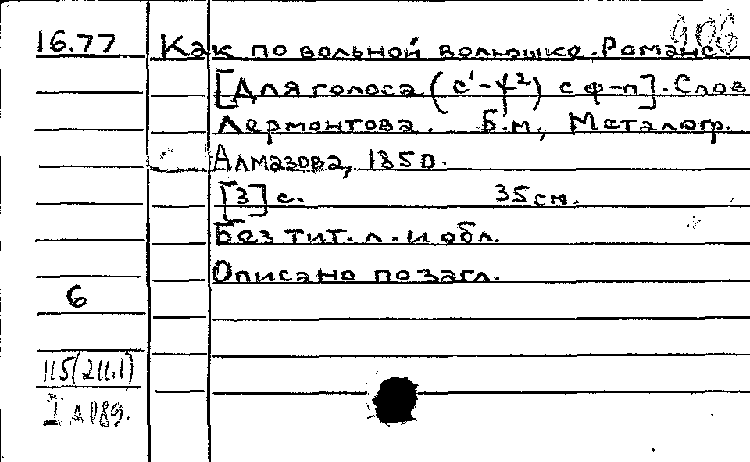 906
16.77 Как по вольной волюшке. Романс
[Для голоса (c¹-f²) с ф-п]. Слов
Лермонтова. Б.м., Металогр.
Алмазова, 1850.
[3] с. 35 см.
Без тит. л. и обл.
Описано по загл.
6
М5(2Ц.1)
I д 089.